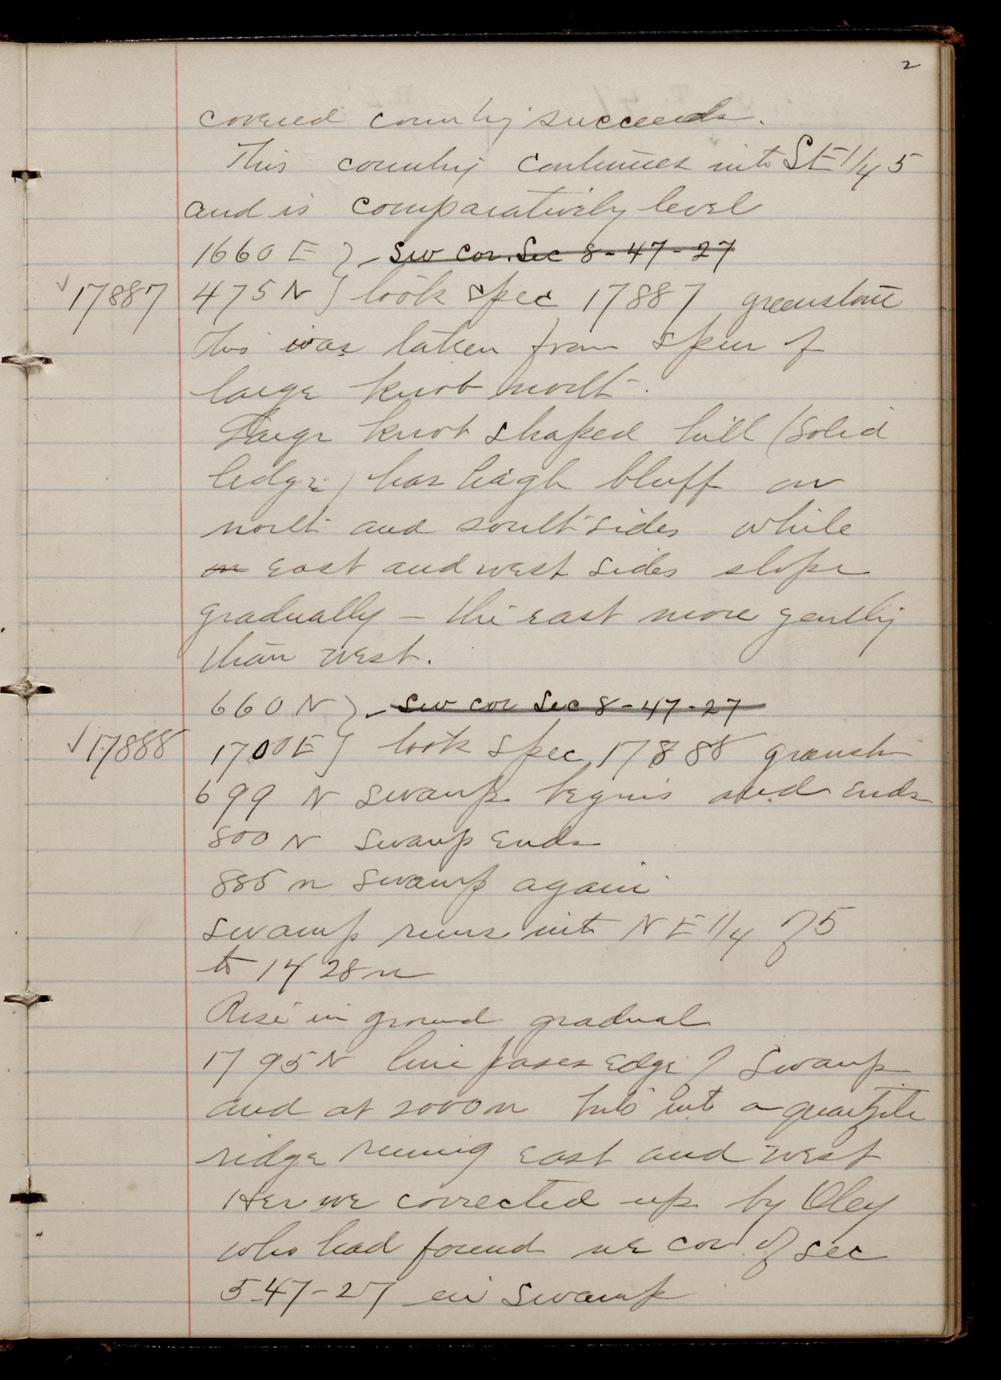 2
covered country succeeds.
This country continues into SE 1/4 5
and is comparatively level
1660 E } - SW Cor. Sec 8-47-27
✓17887 475 N } took Spec 17887 greenstone
This was taken from Spur of
large knob north.
Large knob shaped hill (solid
ledge) has high bluff on
north and south sides while
on east and west sides slope
gradually - the east more gently
than west.
660 N } - SW Cor Sec 8-47-27
✓17888 1700 E } took Spec 17888 greenst
699 N Swamp begins and ends
800 N Swamp Ends
885 N Swamp again
Swamp runs into NE 1/4 of 5
to 1428 N
Rise in ground gradual
1795 N line passes Edge of Swamp
and at 2000 N hits into a quartzite
ridge runing east and west
Her we corrected up by Oley
who had found NE Cor of Sec
5-47-27 in Swamp